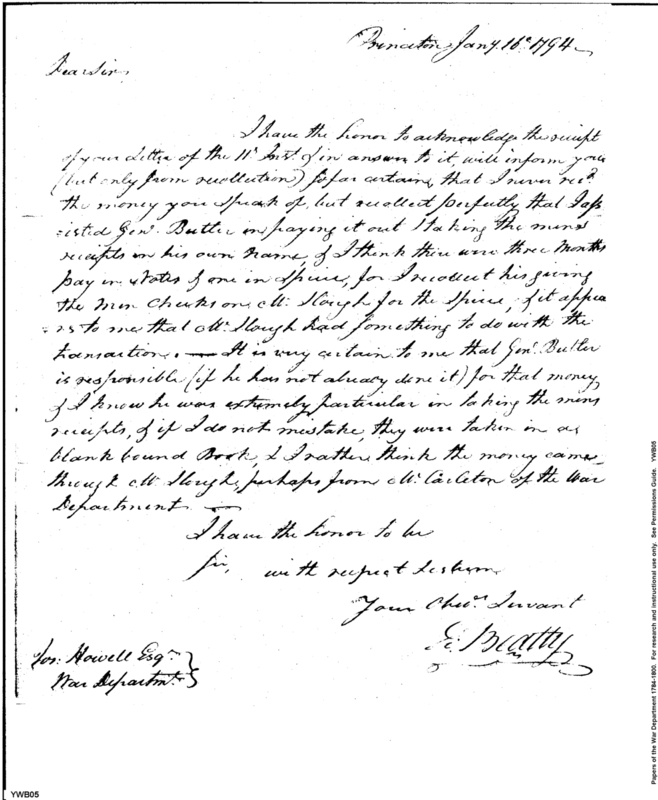 Princeton Jany. 16th 1794
Dear Sir,
I have the honor to acknowledge the reciept
of your Letter of the 11th Inst. & in answer to it, will inform you
(but only from recollection) so far certain, that I never recd.
the money you speak of, but recollect perfectly that I ass
isted Genl. Butler in paying it out & taking the mens
reciepts in his own name, & I think there were three Months
pay in Notes & one in Specie, for I recollect his giving
the Men Checks on Mr. Slough for the Specie, & it appea
rs to me that Mr. Slough had something to do with the
transaction. — It is very certain to me that Genl. Butler
is responsible (if he has not already done it) for that money
& I know he was extremely particular in taking the mens
reciepts, & if I do not mistake, they were taken in a
blank bound Book, & I rather think the money came
through Mr. Slough, perhaps from Mr. Carleton of the War
Department —
I have the honor to be
Sir, with respect & esteem
Your Obedt. Servant
E. Beatty
Jos: Howell Esqr.
War Departmt.
YWB05
Papers of the War Department 1784-1800. For research and instructional use only. See Permissions Guide. YWB05